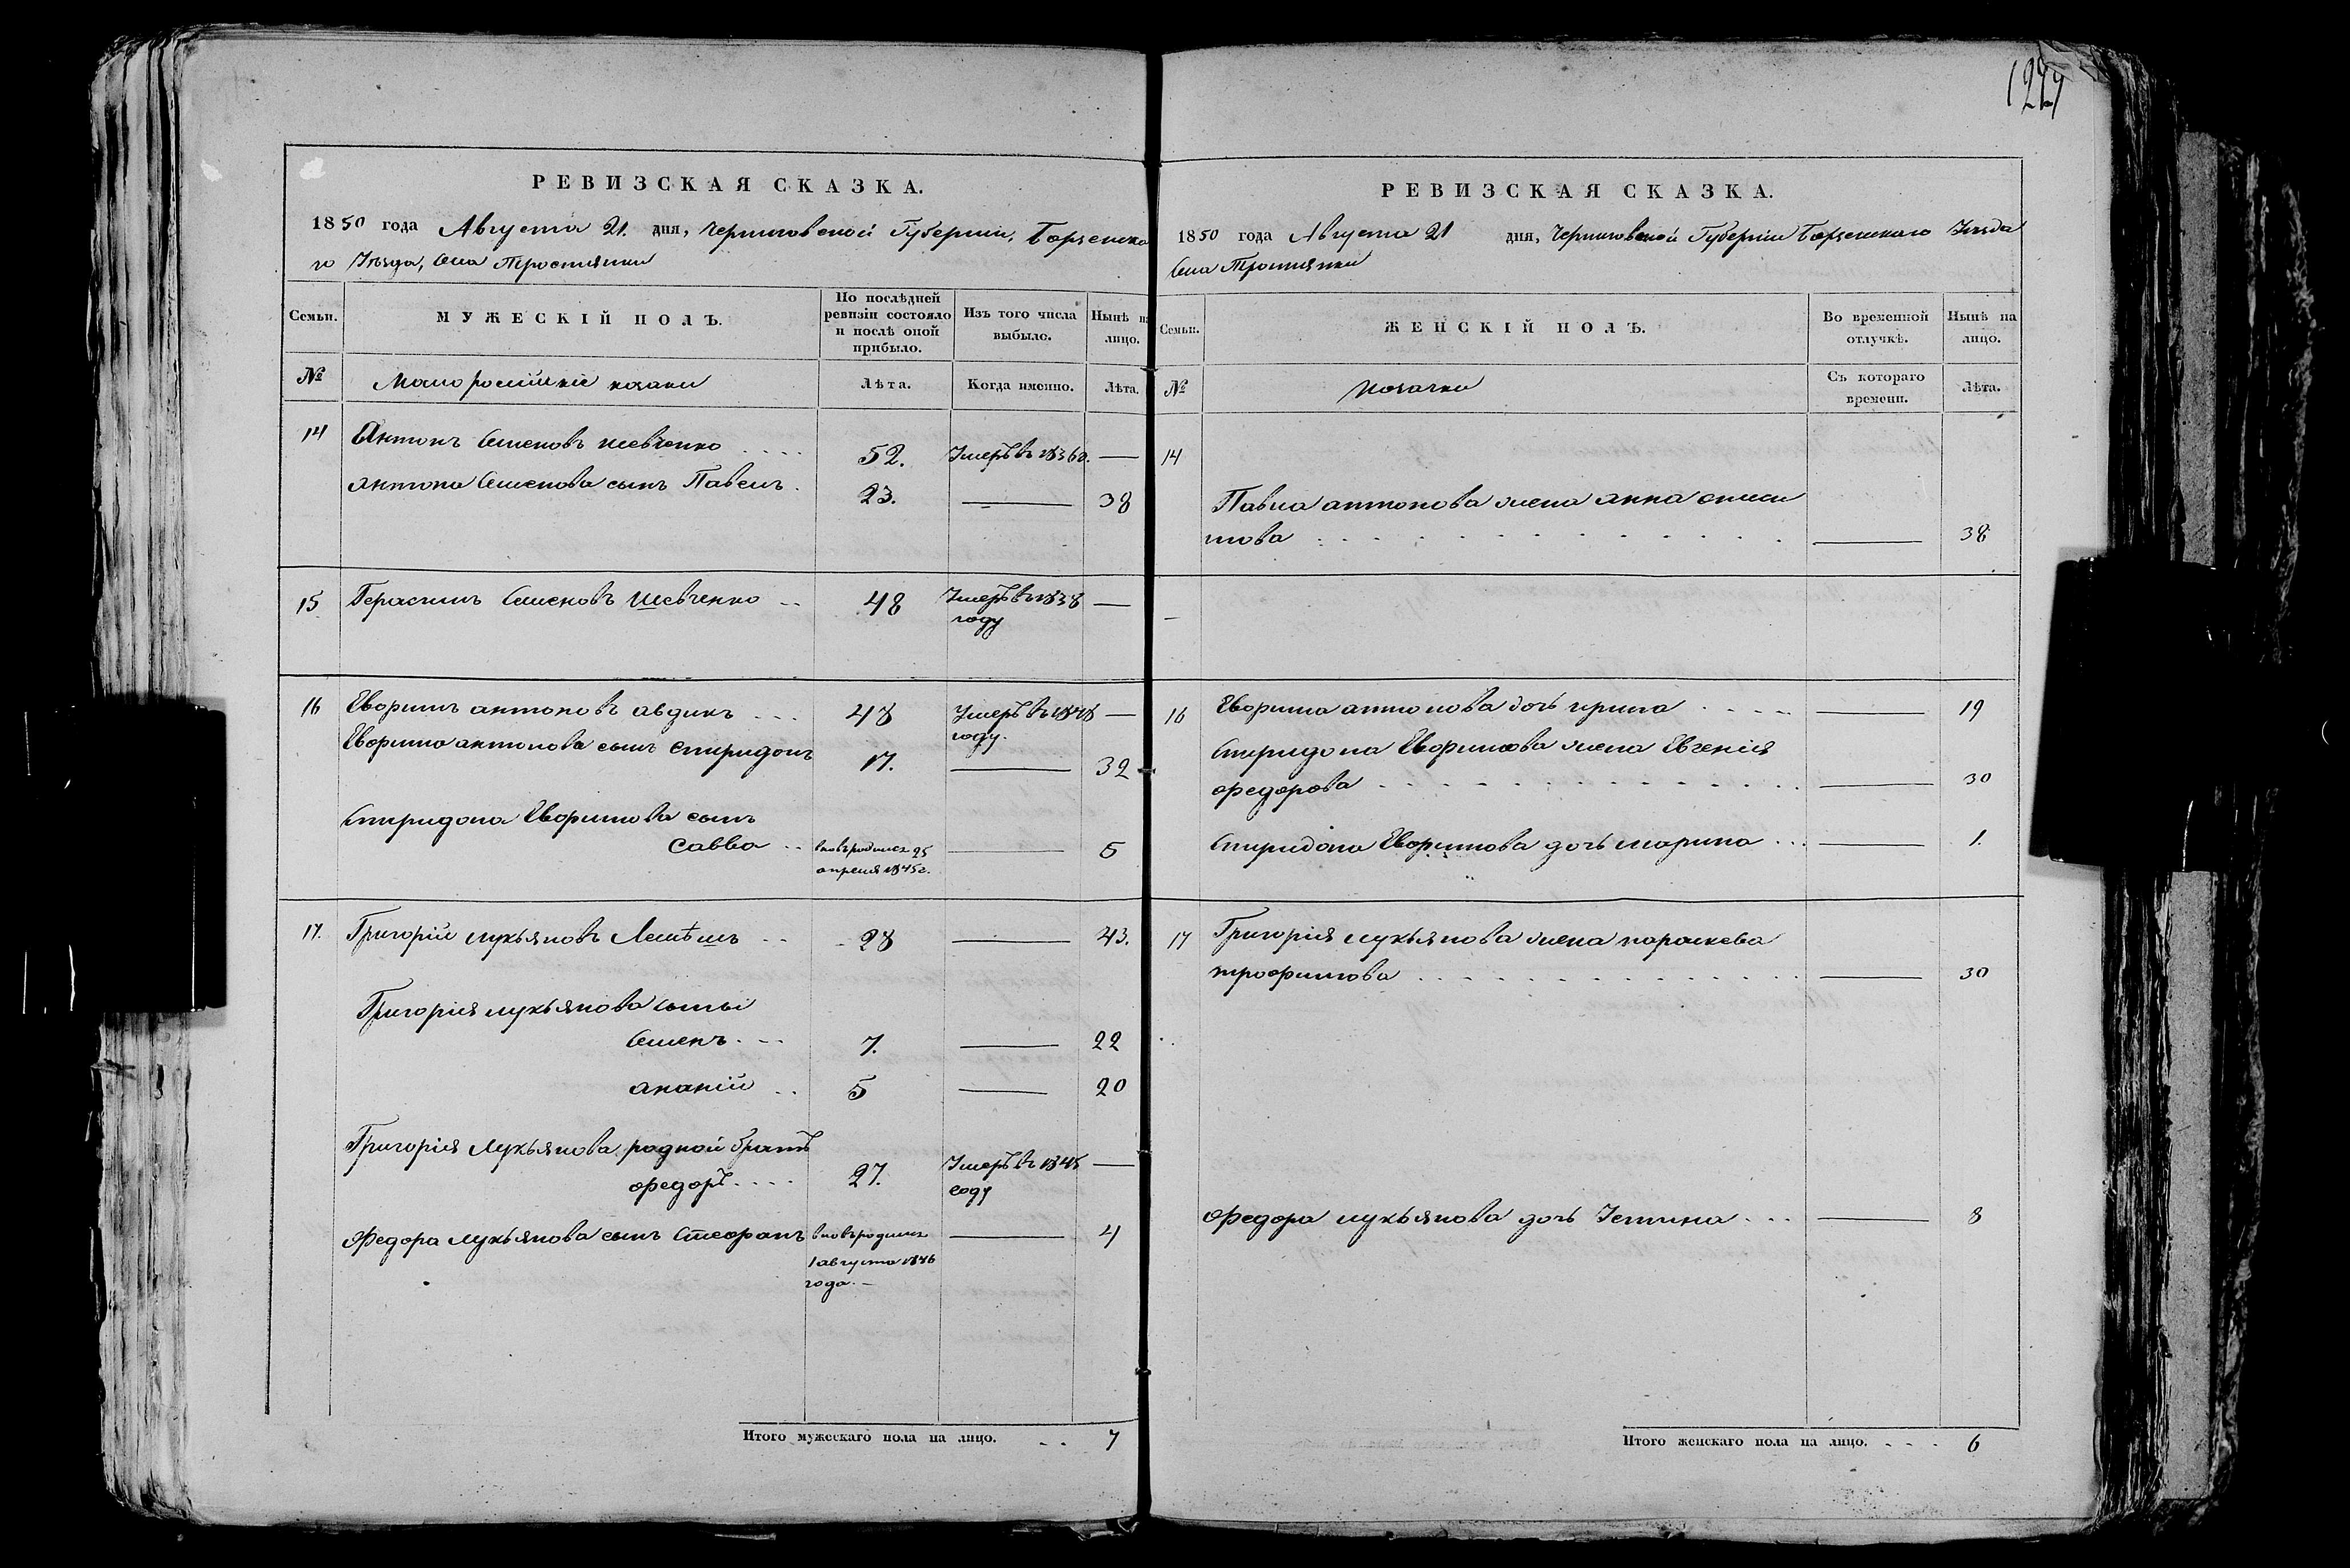 1277
РЕВИЗСКАЯ СКАЗКА.
1850 года Августа 21. дня, Черниговской Губернии, Борзенска
го Уѣзда, Села Тростянки
Семьи.
МУЖЕСКІЙ ПОЛЪ.
По послѣдней ревизіи состояло и послѣ оной прибыло.
Изъ того числа выбыло.
Нынѣ на лицо.
№
Малороссійскіе козаки
Лѣта.
Когда именно.
Лѣта.
14 Антонъ Семеновъ Шевченко .... 52. Умеръ въ 1836 —
Антона Семенова сынъ Павелъ. 23. — 38
15 Герасимъ Семеновъ Шевченко .. 48 Умеръ въ 1838 —
году
16 Евфимъ антоновъ авдикъ ... 48 Умеръ въ 1848 —
году.
Евфима антонова сынъ спиридонъ 17. — 32
Спиридона Евфимова сынъ
Савва .. вновь родился 25 — 5
апреля 1845 г.
17. Григорій лукьяновъ Лемѣшъ .. 28 — 43.
Григорія лукьянова сыны
Семенъ ... 7. — 22
ананій .. 5 — 20
Григорія Лукьянова родной братъ
федоръ .... 27. Умеръ въ 1848 —
году
Федора лукьянова сынъ Стефанъ вновь родился — 4
1 августа 1846
года. —
Итого мужескаго пола на лицо. .. 7
РЕВИЗСКАЯ СКАЗКА.
1850 года Августа 21 дня, Черниговской Губерніи Борзенскаго Уѣзда
Села Тростянки
Семьи.
ЖЕНСКІЙ ПОЛЪ.
Во временной отлучкѣ.
Нынѣ на лицо.
№
козачки
Съ котораго времени.
Лѣта.
14
Павла антонова жена анна
— 38
16 Евфима антонова дочь ирина .... — 19
Спиридона Евфимова жена Евгенія
федорова — 30
Спиридона Евфимова дочь марина ... — 1.
17 Григорія лукьянова жена параскева
трофимова — 30
Федора лукьянова дочь Устина ... — 8
Итого женскаго пола на лицо. .... 6